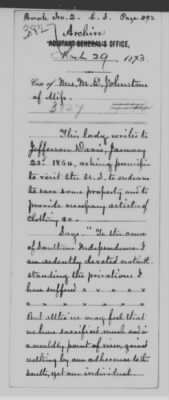 Book No. 2. L. S. Page 292
Archive
ADJUTANT GENERAL'S OFFICE,
29, 1873.
Case of Mrs. M. E. Johnstone
of Miss.
This lady writes to
Jefferson Davis, January
23d. 1864, asking permission
to visit the U. S. to endeavor
to save some property and to
provide necessary articles of
clothing &c.
Says. "To the cause
of Southern Independence I
am ardently devoted notwith-
standing the privations I
have suffered x x x x
x x x x x x x
But altho' we may feel that
we have sacrificed much and in
a worldly point of view, gained
nothing by our adherence to the
South, yet our individual